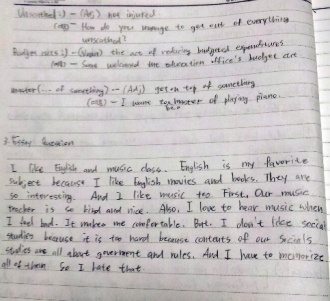 Unscathed :) - (Adj) not injured.
(ex) - How do you manage to get out of everything
unscathed?
Budget cuts :) - (Noun) the act of reducing budgeted expenditures
(ex) - Some welcomed the education office's budget cut
master (... of something) - (Adj) get on top of something
(ex) - I wanna master of playing piano.
3. Essay Question
I like English and music class. English is my favorite
subject because I like English movies and books. They are
so interesting. And I like music too. First, Our music
teacher is so kind and nice. Also, I love to hear music when
I feel bad. It makes me comfortable. But, I don't like social
studies because it is too hard because contents of our socials
studies are all about goverment and rules. And I have to memorize
all of them So I hate that.